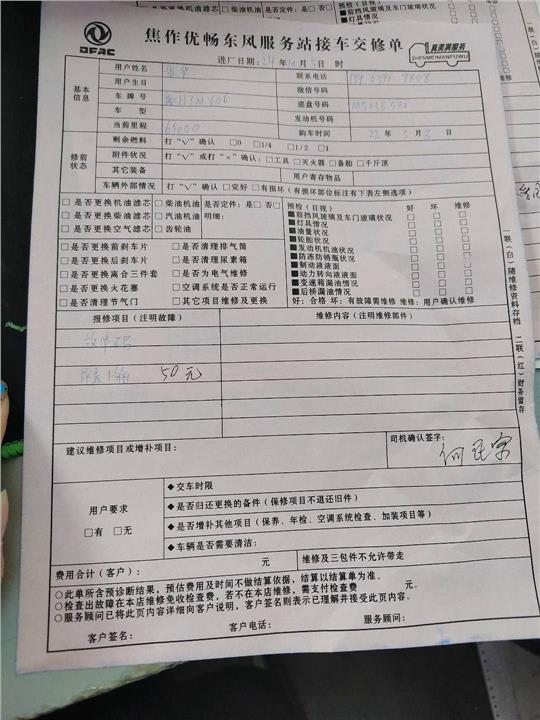 DFAC
焦作优畅东风服务站接车交修单
真美满服务
ZHENMEIMANFUWU
进厂日期: 24年10月5日 时
基本信息
用户姓名 联系电话
用户生日 微信号码
车牌号 底盘号码
车型 发动机号码
当前里程 65000 购车时间 22年3月8日
修前状态
剩余燃料 打“√”确认 □0 □1/4 □1/2 □1
附件状况 打“√”或打“×”确认:□工具 □灭火器 □备胎 □千斤顶
其它装备 用户寄存物品
车辆外部情况 打“√”确认 □完好 □有损坏(有损坏部位标注有下表左侧选项)
□是否更换机油滤芯 □柴油机油 是否定件:是□否□
□是否更换柴油滤芯 □汽油机油 明细:
□是否更换空气滤芯 □齿轮油
□是否更换前刹车片 □是否清理排气筒
□是否更换后刹车片 □是否清理尿素箱
□是否更换离合三件套 □是否为电气维修
□是否更换火花塞 □空调系统是否正常运行
□是否清理节气门 □其它项目维修及更换
预检(目视) 好 坏 维修
■前挡风玻璃及车门玻璃状况 □ □ □
■灯具情况 □ □ □
■油量状况 □ □ □
■轮胎状况 □ □ □
■发动机机油状况 □ □ □
■防冻防锈氟状况 □ □ □
■制动液液面 □ □ □
■动力转向液液面 □ □ □
■变速箱漏油情况 □ □ □
■后桥漏油情况 □ □ □
好:合格 坏:有故障需维修 维修:用户确认维修
报修项目(注明故障) 维修内容(注明维修部件)
50元
建议维修项目或增补项目:
司机确认签字:
用户要求
□有 □无
◆交车时限
◆是否归还更换的备件(保修项目不退还旧件)
◆是否增补其他项目(保养、年检、空调系统检查、加装项目等)
◆车辆是否需要清洁:
费用合计(客户): 元 维修及三包件不允许带走
○此单所含预诊断结果,预估费用及时间不做结算依据,结算以结算单为准。
○检查出故障在本店维修免收检查费,若不在本店维修,需支付检查费 元。
○服务顾问已将此页内容详细向客户说明,客户签名则表示已理解并接受此页内容。
客户签名: 客户电话: 服务顾问:
一联(白)随维修资料存档 二联(红)财务留存